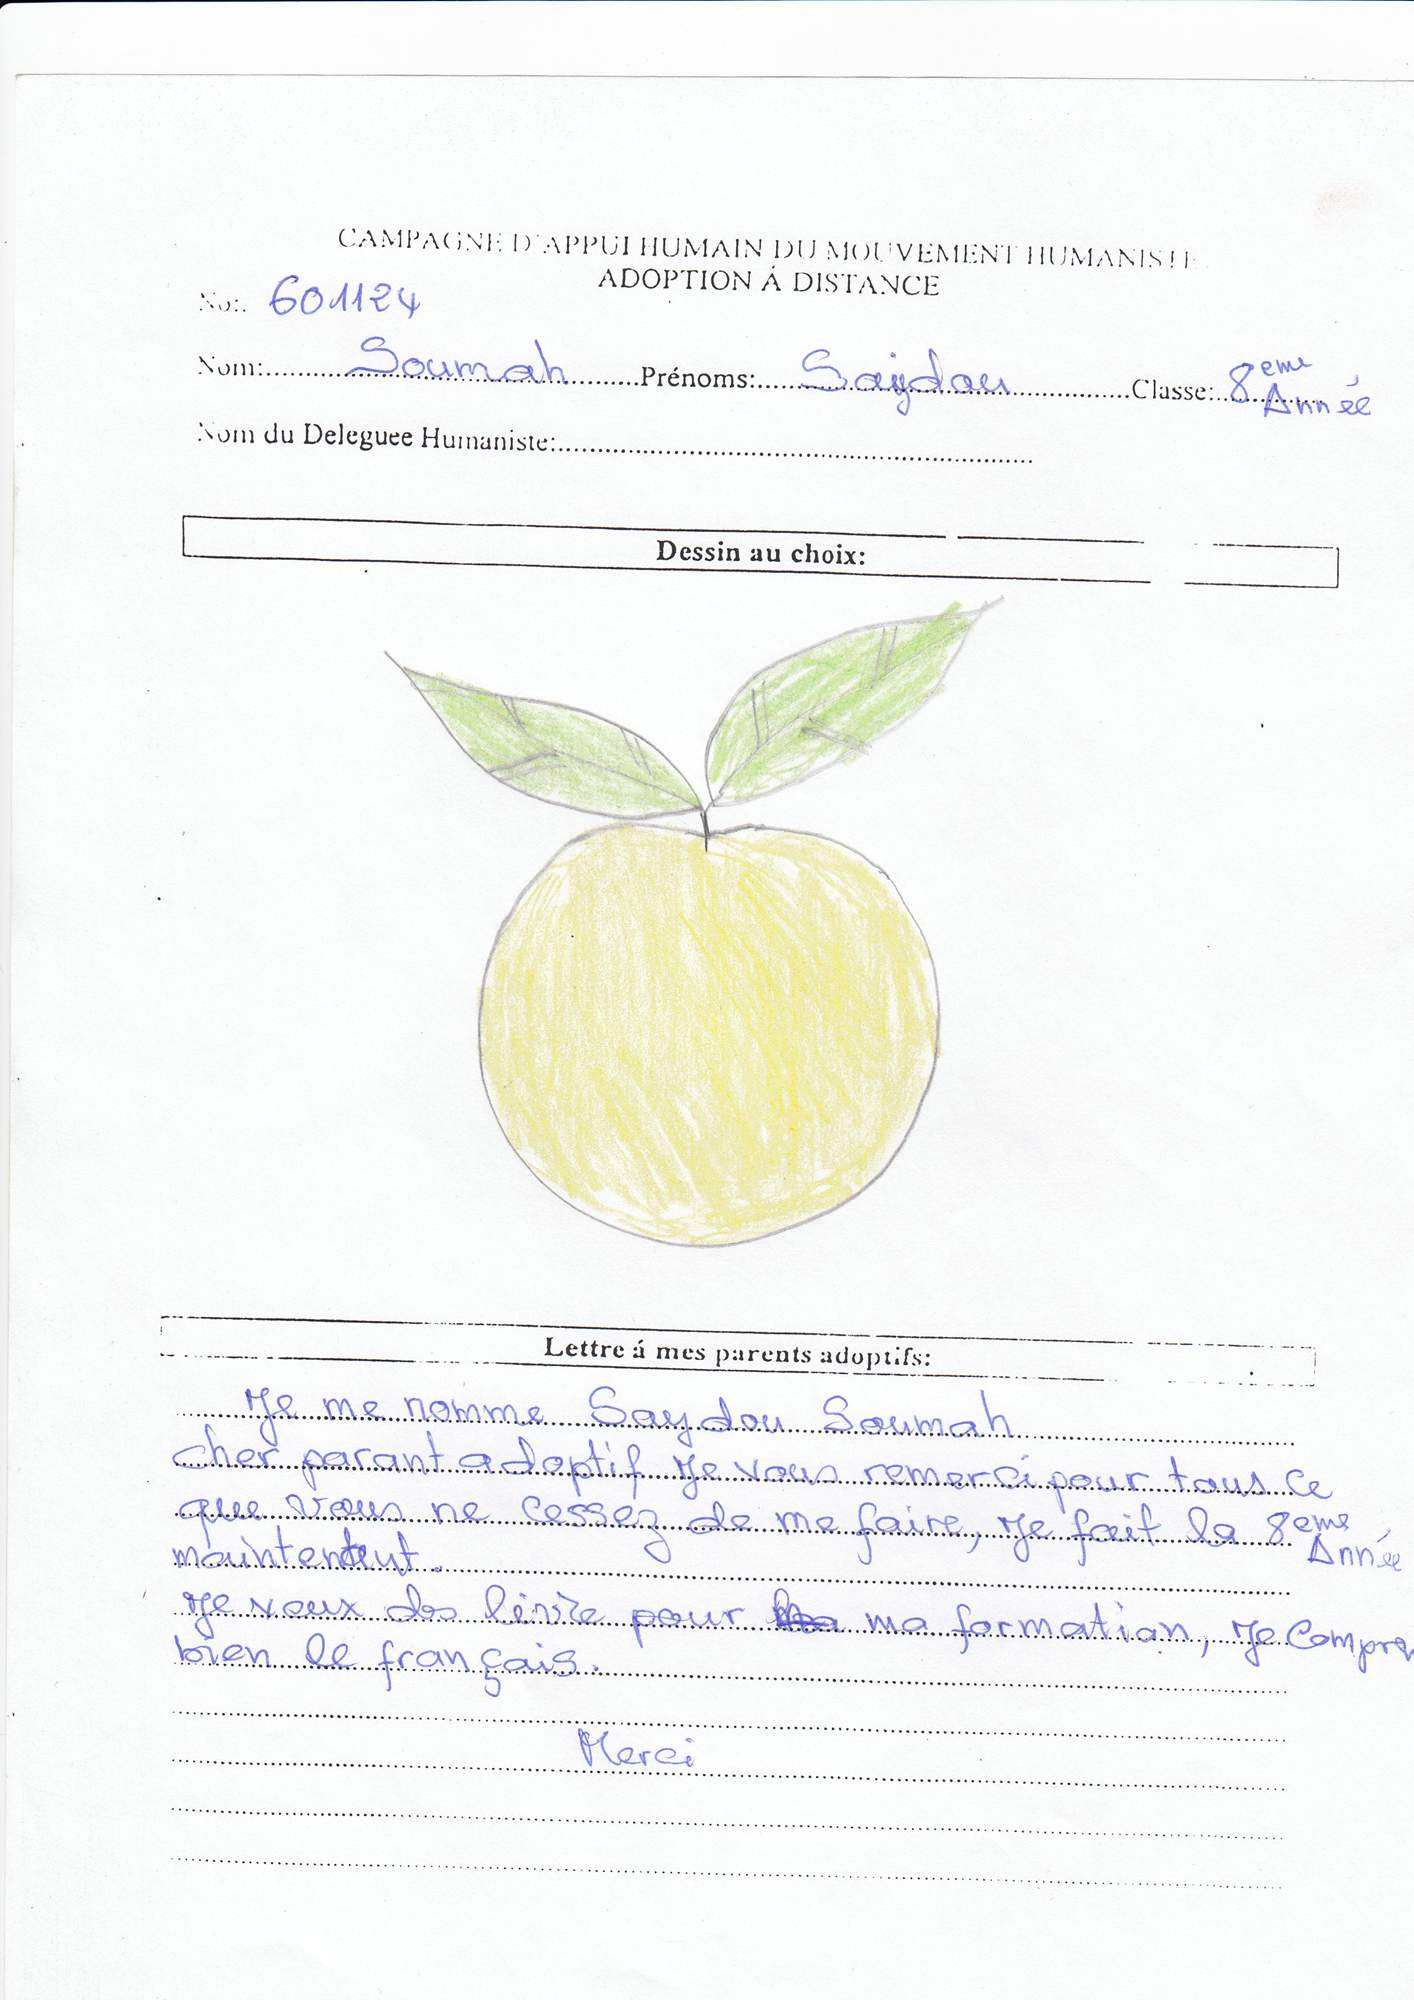 CAMPAGNE D'APPUI HUMAIN DU MOUVEMENT HUMANISTE
ADOPTION Á DISTANCE
No:. 601124
Nom:............Soumah............Prénoms:......Saydou............Classe:..8eme Année
Nom du Deleguee Humaniste:............
Dessin au choix:
Lettre á mes parents adoptifs:
Je me nomme Saydou Soumah
cher parant adoptif Je vous remerci pour tous ce
que vous ne cessez de me faire, Je fait la 8eme Année
Je veux des pour ma formation, Je Compren
bien le français.
Merci